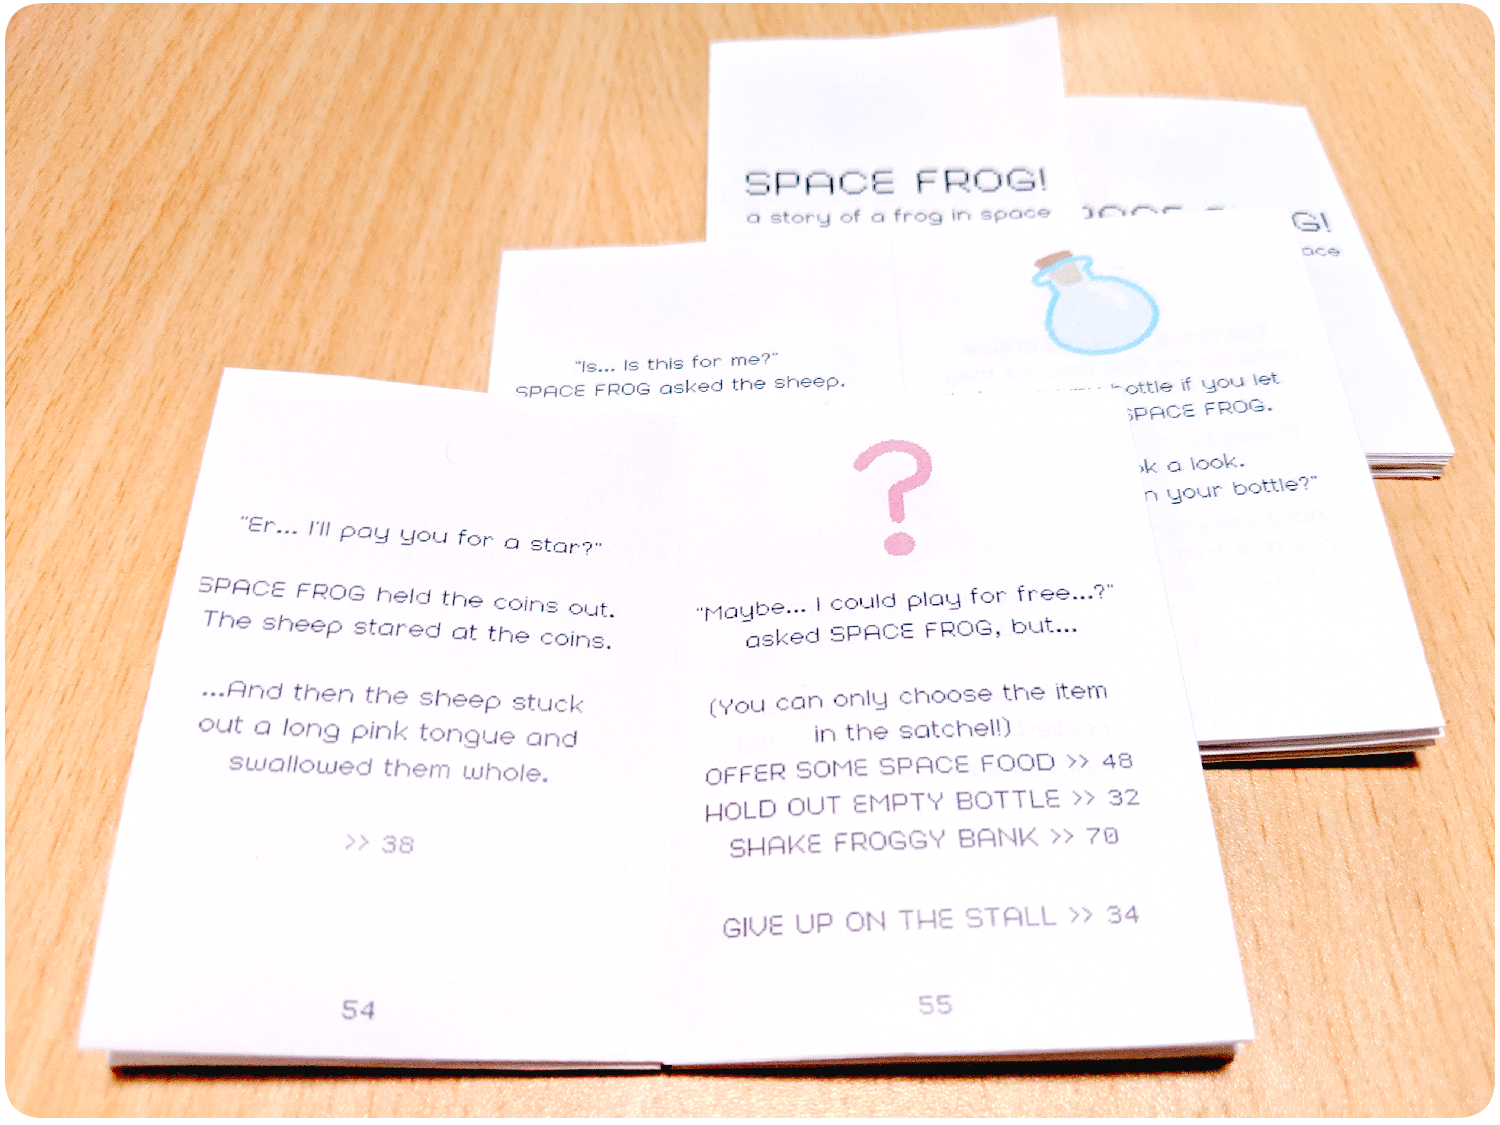 SPACE FROG!
a story of a frog in space
G!
"Is... Is this for me?"
SPACE FROG asked the sheep.
bottle if you let
SPACE FROG.
a look.
your bottle?"
"Er... I'll pay you for a star?"
SPACE FROG held the coins out.
The sheep stared at the coins.
...And then the sheep stuck
out a long pink tongue and
swallowed them whole.
>> 38
54
?
"Maybe... I could play for free...?"
asked SPACE FROG, but...
(You can only choose the item
in the satchel!)
OFFER SOME SPACE FOOD >> 48
HOLD OUT EMPTY BOTTLE >> 32
SHAKE FROGGY BANK >> 70
GIVE UP ON THE STALL >> 34
55